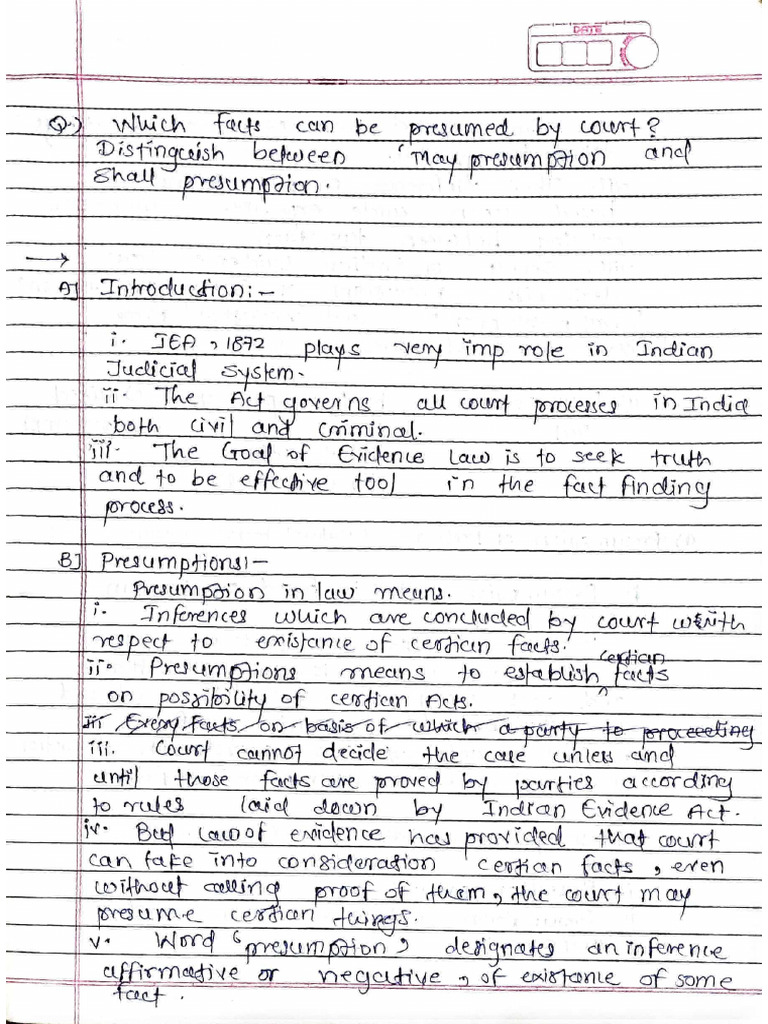 DATE
Q.) Which facts can be presumed by court?
Distinguish between 'May presumption and
Shall presumption.
→
A] Introduction:-
i. IEA, 1872 plays very imp role in Indian
Judicial System.
ii. The Act governs all court processes in India
both civil and criminal.
iii. The Goal of Evidence Law is to seek truth
and to be effective tool in the fact finding
process.
B] Presumptions:-
Presumption in law means.
i. Inferences which are concluded by court with
respect to existance of certian facts.
certian
ii. Presumptions means to establish ^ facts
on possibility of certian Acts.
iii Every facts on basis of which a party to proceeding
iii. Court cannot decide the case unless and
until those facts are proved by parties according
to rules laid down by Indian Evidence Act.
iv. But Law of evidence has provided that court
can take into consideration certian facts, even
without calling proof of them, the court may
presume certian things.
v. Word 'presumption' designates an inference
affirmative or negative, of existance of some
fact.